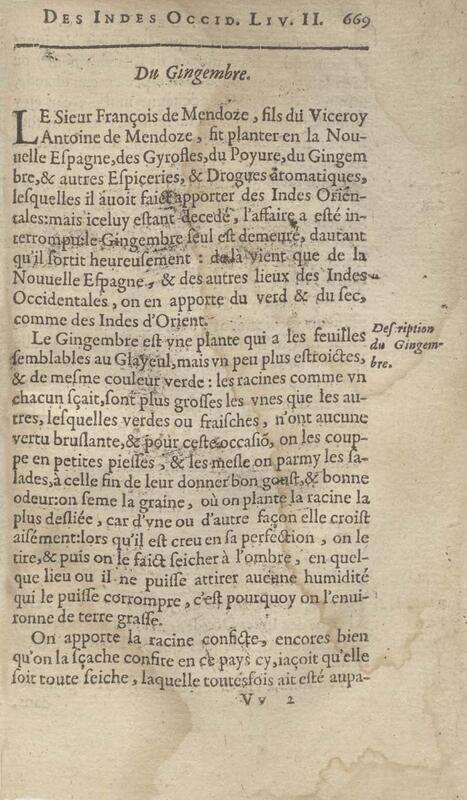 DES INDES OCCID. LIV. II. 669
Du Gingembre.
LE Sieur François de Mendoze, fils du Viceroy
Antoine de Mendoze, fit planter en la Nou-
uelle Espagne, des Gyrofles, du Poyure, du Gingem
bre, & autres Espiceries, & Drogues aromatiques,
lesquelles il auoit faict apporter des Indes Orien-
tales: mais iceluy estant decedé, l'affaire a esté in-
terrompu: le Gingembre seul est demeuré, dautant
qu'il sortit heureusement : de là vient que de la
Nouuelle Espagne, & des autres lieux des Indes
Occidentales, on en apporte du verd & du sec,
comme des Indes d'Orient.
Le Gingembre est vne plante qui a les feuilles
Description
du Gingem-
bre.
semblables au Glayeul, mais vn peu plus estroictes,
& de mesme couleur verde : les racines comme vn
chacun sçait, sont plus grosses les vnes que les au-
tres, lesquelles verdes ou fraisches, n'ont aucune
vertu bruslante, & pour ceste occasiõ, on les coup-
pe en petites piesses, & les mesle on parmy les sa-
lades, à celle fin de leur donner bon goust, & bonne
odeur: on seme la graine, où on plante la racine la
plus desliée, car d'vne ou d'autre façon elle croist
aisément: lors qu'il est creu en sa perfection, on le
tire, & puis on le faict seicher à l'ombre, en quel-
que lieu ou il ne puisse attirer aucune humidité
qui le puisse corrompre, c'est pourquoy on l'enui-
ronne de terre grasse.
On apporte la racine conficte, encores bien
qu'on la sçache confire en ce pays cy, iaçoit qu'elle
soit toute seiche, laquelle toutesfois ait esté aupa-
Vv 2